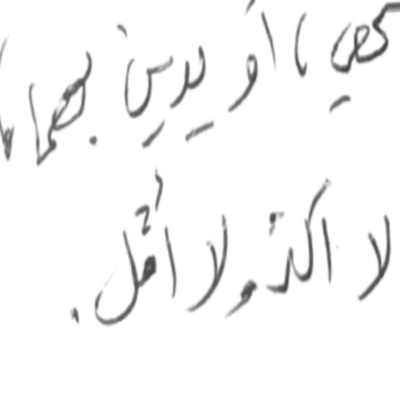 ، أو يدين بهما ،
لا اكثر ولا أقل .